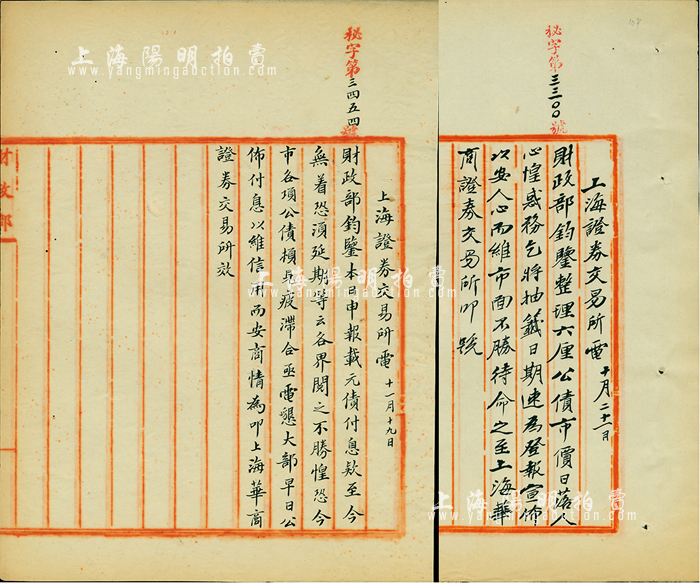 秘字第三三〇〇號
上海證券交易所電 十月二十二日
財政部鈞鑒整理六厘公債市價日落人
心惶惑務乞將抽籤日期速為登報宣佈
以安人心而維市面不勝待命之至上海華
商證券交易所叩號
秘字第三四五四號
上海證券交易所電 十一月十九日
財政部鈞鑒本日申報載元債付息欵至今
無着恐須延期等云各界閱之不勝惶恐今
市各項公債損呆疲滯合亟電懇大部早日公
佈付息以維信用而安商情為叩上海華商
證券交易所效
財政部
上海陽明拍賣
www.yangmingauction.com
上海陽明拍賣
www.yangmingauction.com
上海陽明拍賣
www.yangmingauction.com